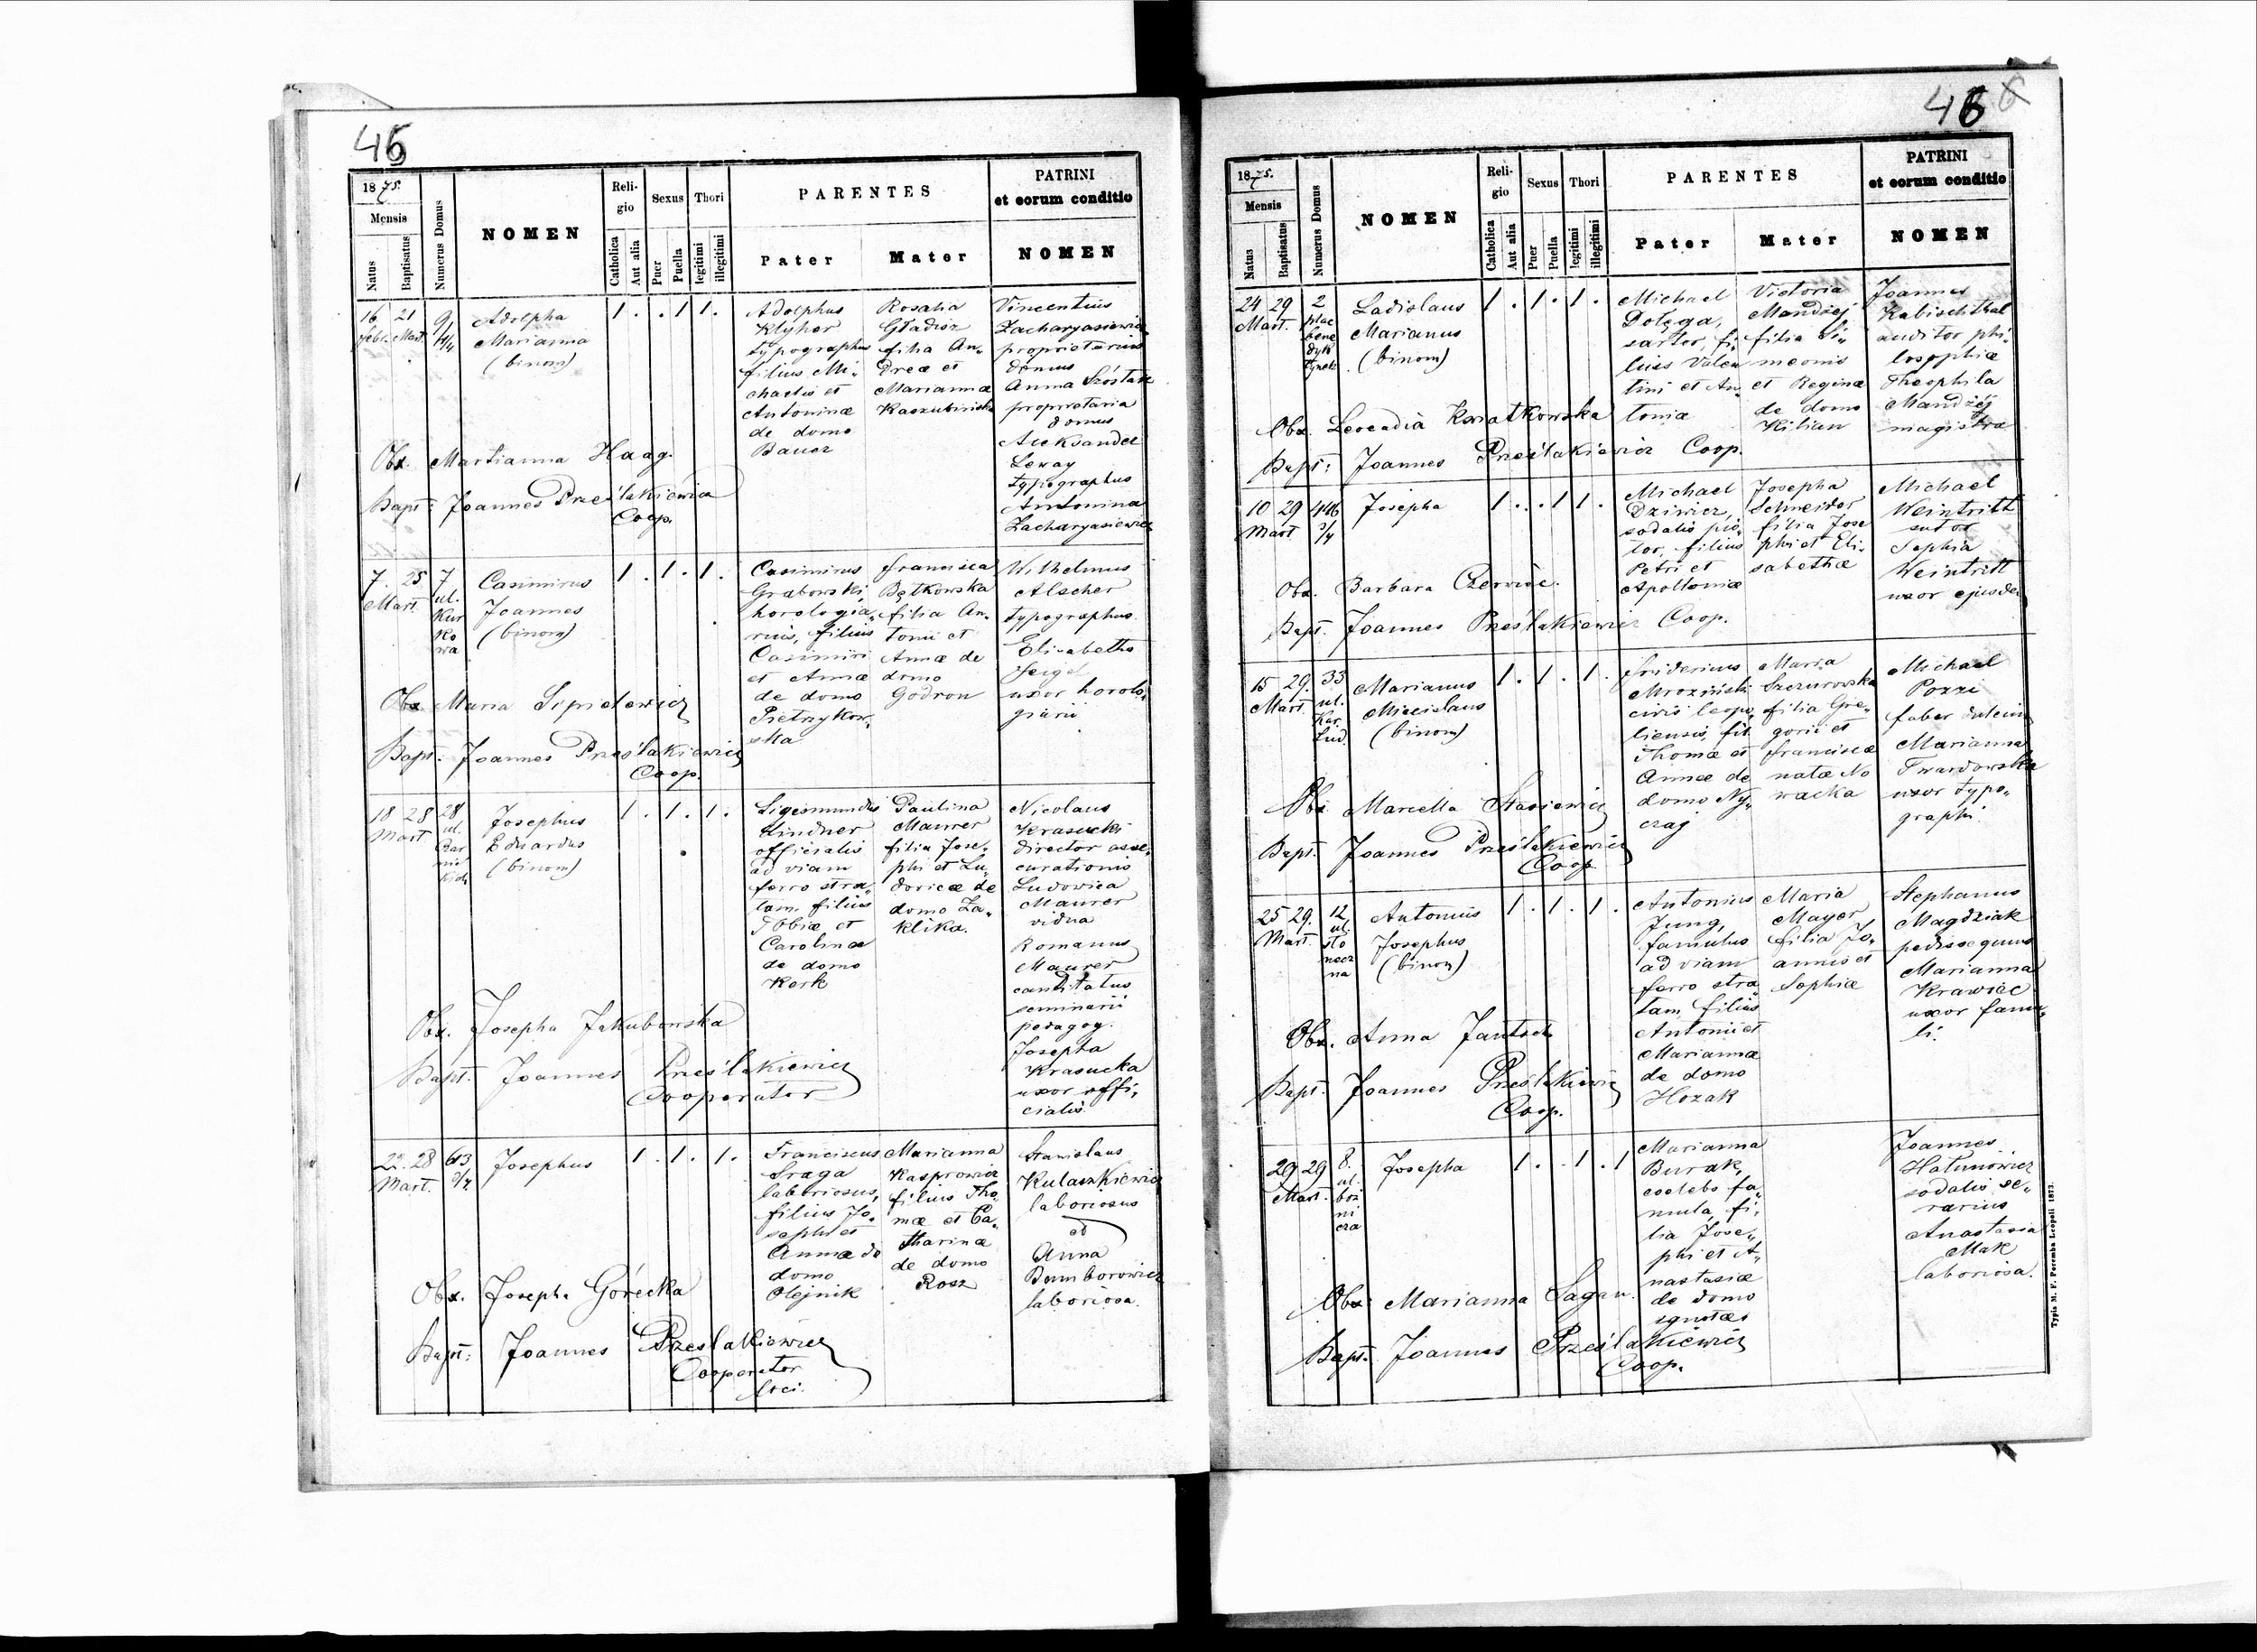 45
1875.
Mensis
Natus
Baptisatus
Numerus Domus
NOMEN
Reli-
gio
Catholica
Aut alia
Sexus
Puer
Puella
Thori
legitimi
illegitimi
PARENTES
Pater
Mater
PATRINI
et eorum conditio
NOMEN
16 21
febr. Mart.
9
1/4
Adolpha
Marianna
(binom)
1 . . 1 1 .
Adolphus
Klyher
typographus
filius Mi-
chaelis et
Antoninæ
de domo
Bauer
Rosalia
Gładisz
filia An-
dreæ et
Mariannæ
Vincentius
Zacharyasiewicz
proprietarius
domus
Anna Szóstak
proprietaria
domus
Aleksander
Leway
typographus
Antonina
Zacharyasiewicz
Obx. Martianna Haag.
Bapt: Joannes Prześlakiewicz
Coop.
7. 25
Mart.
7
ul.
Kur
ko
wa
Casimirus
Joannes
(binom)
1 . 1 . 1 .
Casimirus
Grabowski,
horologia-
rius, filius
Casimiri
et Annæ
de domo
Pietrzykow-
ska
Francisca
Bętkowska
filia An-
tonii et
Annæ de
domo
Godron
Wilhelmus
Alscher
typographus.
Elisabetha
uxor horolo-
giarii
Obx Maria Sipidowicz
Bapt: Joannes Prześlakiewicz
Coop.
18 28
Mart
28
ul.
Czar
niec
kich
Josephus
Eduardus
(binom)
1 . 1 . 1 .
Sigismundus
Lindner
officialis
ad viam
ferro stra-
tam filius
Tobiæ et
Carolinæ
de domo
Kerk
Paulina
Maurer
filia Jose-
phi et Lu-
doricæ de
domo Za-
klika.
Nicolaus
Krasucki
director asse-
curationis
Ludovica
Maurer
vidua
Romanus
Maurer
candidatus
seminarii
pedagog.
Josepha
Krasucka
uxor offi-
cialis.
Obx. Josepha Jakubowska
Bapt. Joannes Prześlakiewicz
Cooperator
22. 28
Mart.
613
2/4
Josephus
1 . 1 . 1 .
Franciscus
Sraga
laboriosus,
filius Jo-
sephi et
Annæ de
domo
Olejnik
Marianna
Kasprowicz
filius Tho-
mæ et Ca-
tharinæ
de domo
Rosz
Stanislaus
Kulaszkiewicz
laboriosus
et
Anna
Bamborowicz
laboriosa.
Obx. Josepha Górecka
Bapt: Joannes Prześlakiewicz
Cooperator
loci.
46
1875.
Mensis
Natus
Baptisatus
Numerus Domus
NOMEN
Reli-
gio
Catholica
Aut alia
Sexus
Puer
Puella
Thori
legitimi
illegitimi
PARENTES
Pater
Mater
PATRINI
et eorum conditio
NOMEN
24 29
Mart.
2
plac
bene
dyk
tyńsk
Ladislaus
Marianus
(binom)
1 . 1 . 1 .
Michael
Dołęga,
sartor, fi-
lius Valen
tini et An-
toniæ
Victoria
Mandzéj
filia Si-
meonis
et Reginæ
de domo
Kilian
Joannes
Kabischthal
auditor phi-
losophiæ
Theophila
Mandzéj
magistra
Obx. Leocadia Kwiatkowska
Bapt: Joannes Prześlakiewicz Coop.
10 29
Mart.
446
3/4
Josepha
1 . . 1 1 .
Michael
Dziwicz,
sodalis pis-
tor, filius
Petri et
Apolloniæ
Josepha
Schneider
filia Jose
phi et Eli-
sabethæ
Michael
Weintritt
sutor
Sophia
Weintritt
uxor ejusdem
Obx. Barbara Czerwiec.
Bapt. Joannes Prześlakiewicz Coop.
15 29.
Mart.
33
ul.
Kar.
Lud.
Marianus
Miecislaus
(binom)
1 . 1 . 1 .
Fridericus
Mroziński
civis leopo-
liensis, fil.
Thomæ et
Annæ de
domo Ny-
czaj
Maria
Szczurowska
filia Gre-
gorii et
Franciscæ
natæ No
wacka
Michael
Pozzi
faber
Marianna
Twardowska
uxor typo-
graphi.
Obx Marcella Stasiewicz
Bapt. Joannes Prześlakiewicz
Coop
25 29.
Mart.
12
ul.
sło
necz
na
Antonius
Josephus
(binom)
1 . 1 . 1 .
Antonius
Jung,
famulus
ad viam
ferro stra
tam, filius
Antonii et
Mariannæ
de domo
Hozak
Maria
Mayer
filia Jo-
annis et
Sophiæ
Stephanus
Magdziak
pedissequus
Marianna
Krawiec
uxor famu-
li.
Obx. Anna Jantsch
Bapt. Joannes Prześlakiewicz
Coop.
29 29
Mart.
8.
ul.
boż
ni
cza
Josepha
1 . . 1 . 1
Marianna
Burak,
coelebs fa-
mula, fi-
lia Jose-
phi et A-
nastasiæ
de domo
ignotæ
Joannes
Hatunowicz
sodalis se-
rarius
Anastasia
Mak
laboriosa.
Obx Marianna Sagan.
Bapt. Joannes Prześlakiewicz
Coop.
Typis M. F. Poremba Leopoli 1873.